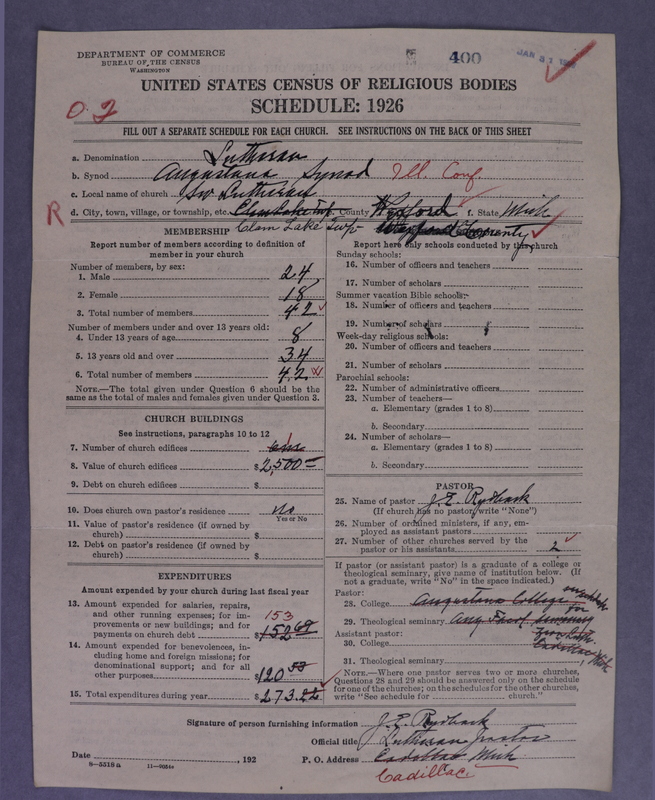 DEPARTMENT OF COMMERCE
BUREAU OF THE CENSUS
WASHINGTON
400
JAN 31
UNITED STATES CENSUS OF RELIGIOUS BODIES
SCHEDULE: 1926
O.J
FILL OUT A SEPARATE SCHEDULE FOR EACH CHURCH. SEE INSTRUCTIONS ON THE BACK OF THIS SHEET
a. Denomination Lutheran
b. Synod Augustana Synod Ill. Conf
c. Local name of church Sw Lutheran
R
d. City, town, village, or township, etc. Clam Lake Twp. County Wexford f. State Mich
Clam Lake Twp Wexford County
MEMBERSHIP
Report number of members according to definition of member in your church
Number of members, by sex:
1. Male 24
2. Female 18
3. Total number of members 42
Number of members under and over 13 years old:
4. Under 13 years of age 8
5. 13 years old and over 34
6. Total number of members 42
NOTE.—The total given under Question 6 should be the same as the total of males and females given under Question 3.
CHURCH BUILDINGS
See instructions, paragraphs 10 to 12
7. Number of church edifices one 1
8. Value of church edifices $2,500
9. Debt on church edifices $
10. Does church own pastor's residence? No
Yes or No
11. Value of pastor's residence (if owned by church) $
12. Debt on pastor's residence (if owned by church) $
EXPENDITURES
Amount expended by your church during last fiscal year
13. Amount expended for salaries, repairs, and other running expenses; for improvements or new buildings; and for payments on church debt $152 68
153
14. Amount expended for benevolences, including home and foreign missions; for denominational support; and for all other purposes $120
15. Total expenditures during year $273.22
Report here only schools conducted by this church
Sunday schools:
16. Number of officers and teachers
17. Number of scholars
Summer vacation Bible schools:
18. Number of officers and teachers
19. Number of scholars
Week-day religious schools:
20. Number of officers and teachers
21. Number of scholars
Parochial schools:
22. Number of administrative officers
23. Number of teachers—
a. Elementary (grades 1 to 8)
b. Secondary
24. Number of scholars—
a. Elementary (grades 1 to 8)
b. Secondary
PASTOR
25. Name of pastor J. E. Rydback
(If church has no pastor, write "None")
26. Number of ordained ministers, if any, employed as assistant pastors
27. Number of other churches served by the pastor or his assistants 2
If pastor (or assistant pastor) is a graduate of a college or theological seminary, give name of institution below. (If not a graduate, write "No" in the space indicated.)
Pastor:
28. College Augustana College
29. Theological seminary Aug. Theol. Seminary
for
Zion Luth.
Cadillac, Mich
Assistant pastor:
30. College
31. Theological seminary
NOTE.—Where one pastor serves two or more churches, Questions 28 and 29 should be answered only on the schedule for one of the churches; on the schedules for the other churches, write "See schedule for ........ church."
Signature of person furnishing information J. E. Rydback
Official title Lutheran pastor
Date , 192
P. O. Address Cadillac Mich
Cadillac
8—5318a 11—9051a